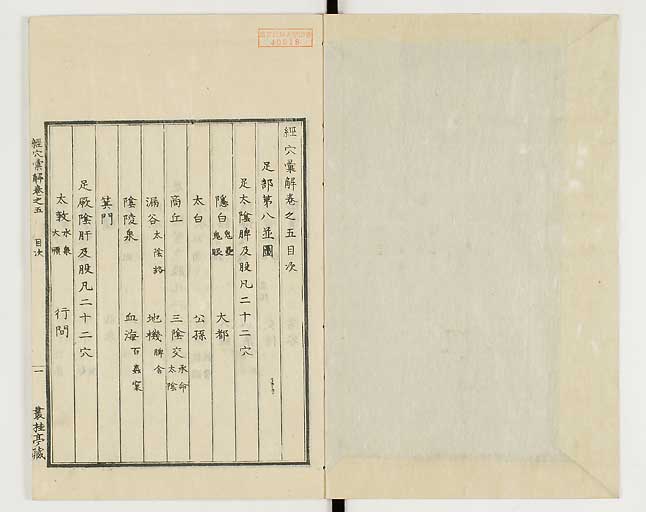 經穴彙解卷之五目次
足部第八並圖
足太陰脾及股凡二十二穴
隱白 鬼壘 鬼眼 大都
太白 公孫
商丘 三陰交 承命 太陰
漏谷 太陰絡 地機 脾舍
陰陵泉 血海 百蟲窠
箕門
足厥陰肝及股凡二十二穴
太敦 水泉 大順 行間
經穴彙解卷之五 目次 一 叢桂亭藏
40018